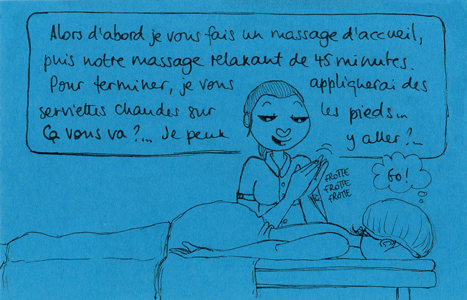 Alors d'abord je vous fais un massage d'accueil,
puis notre massage relaxant de 45 minutes.
Pour terminer, je vous appliquerai des
serviettes chaudes sur les pieds...
Ça vous va?... Je peux y aller?...
FROTTE
FROTTE
FROTTE
Go!